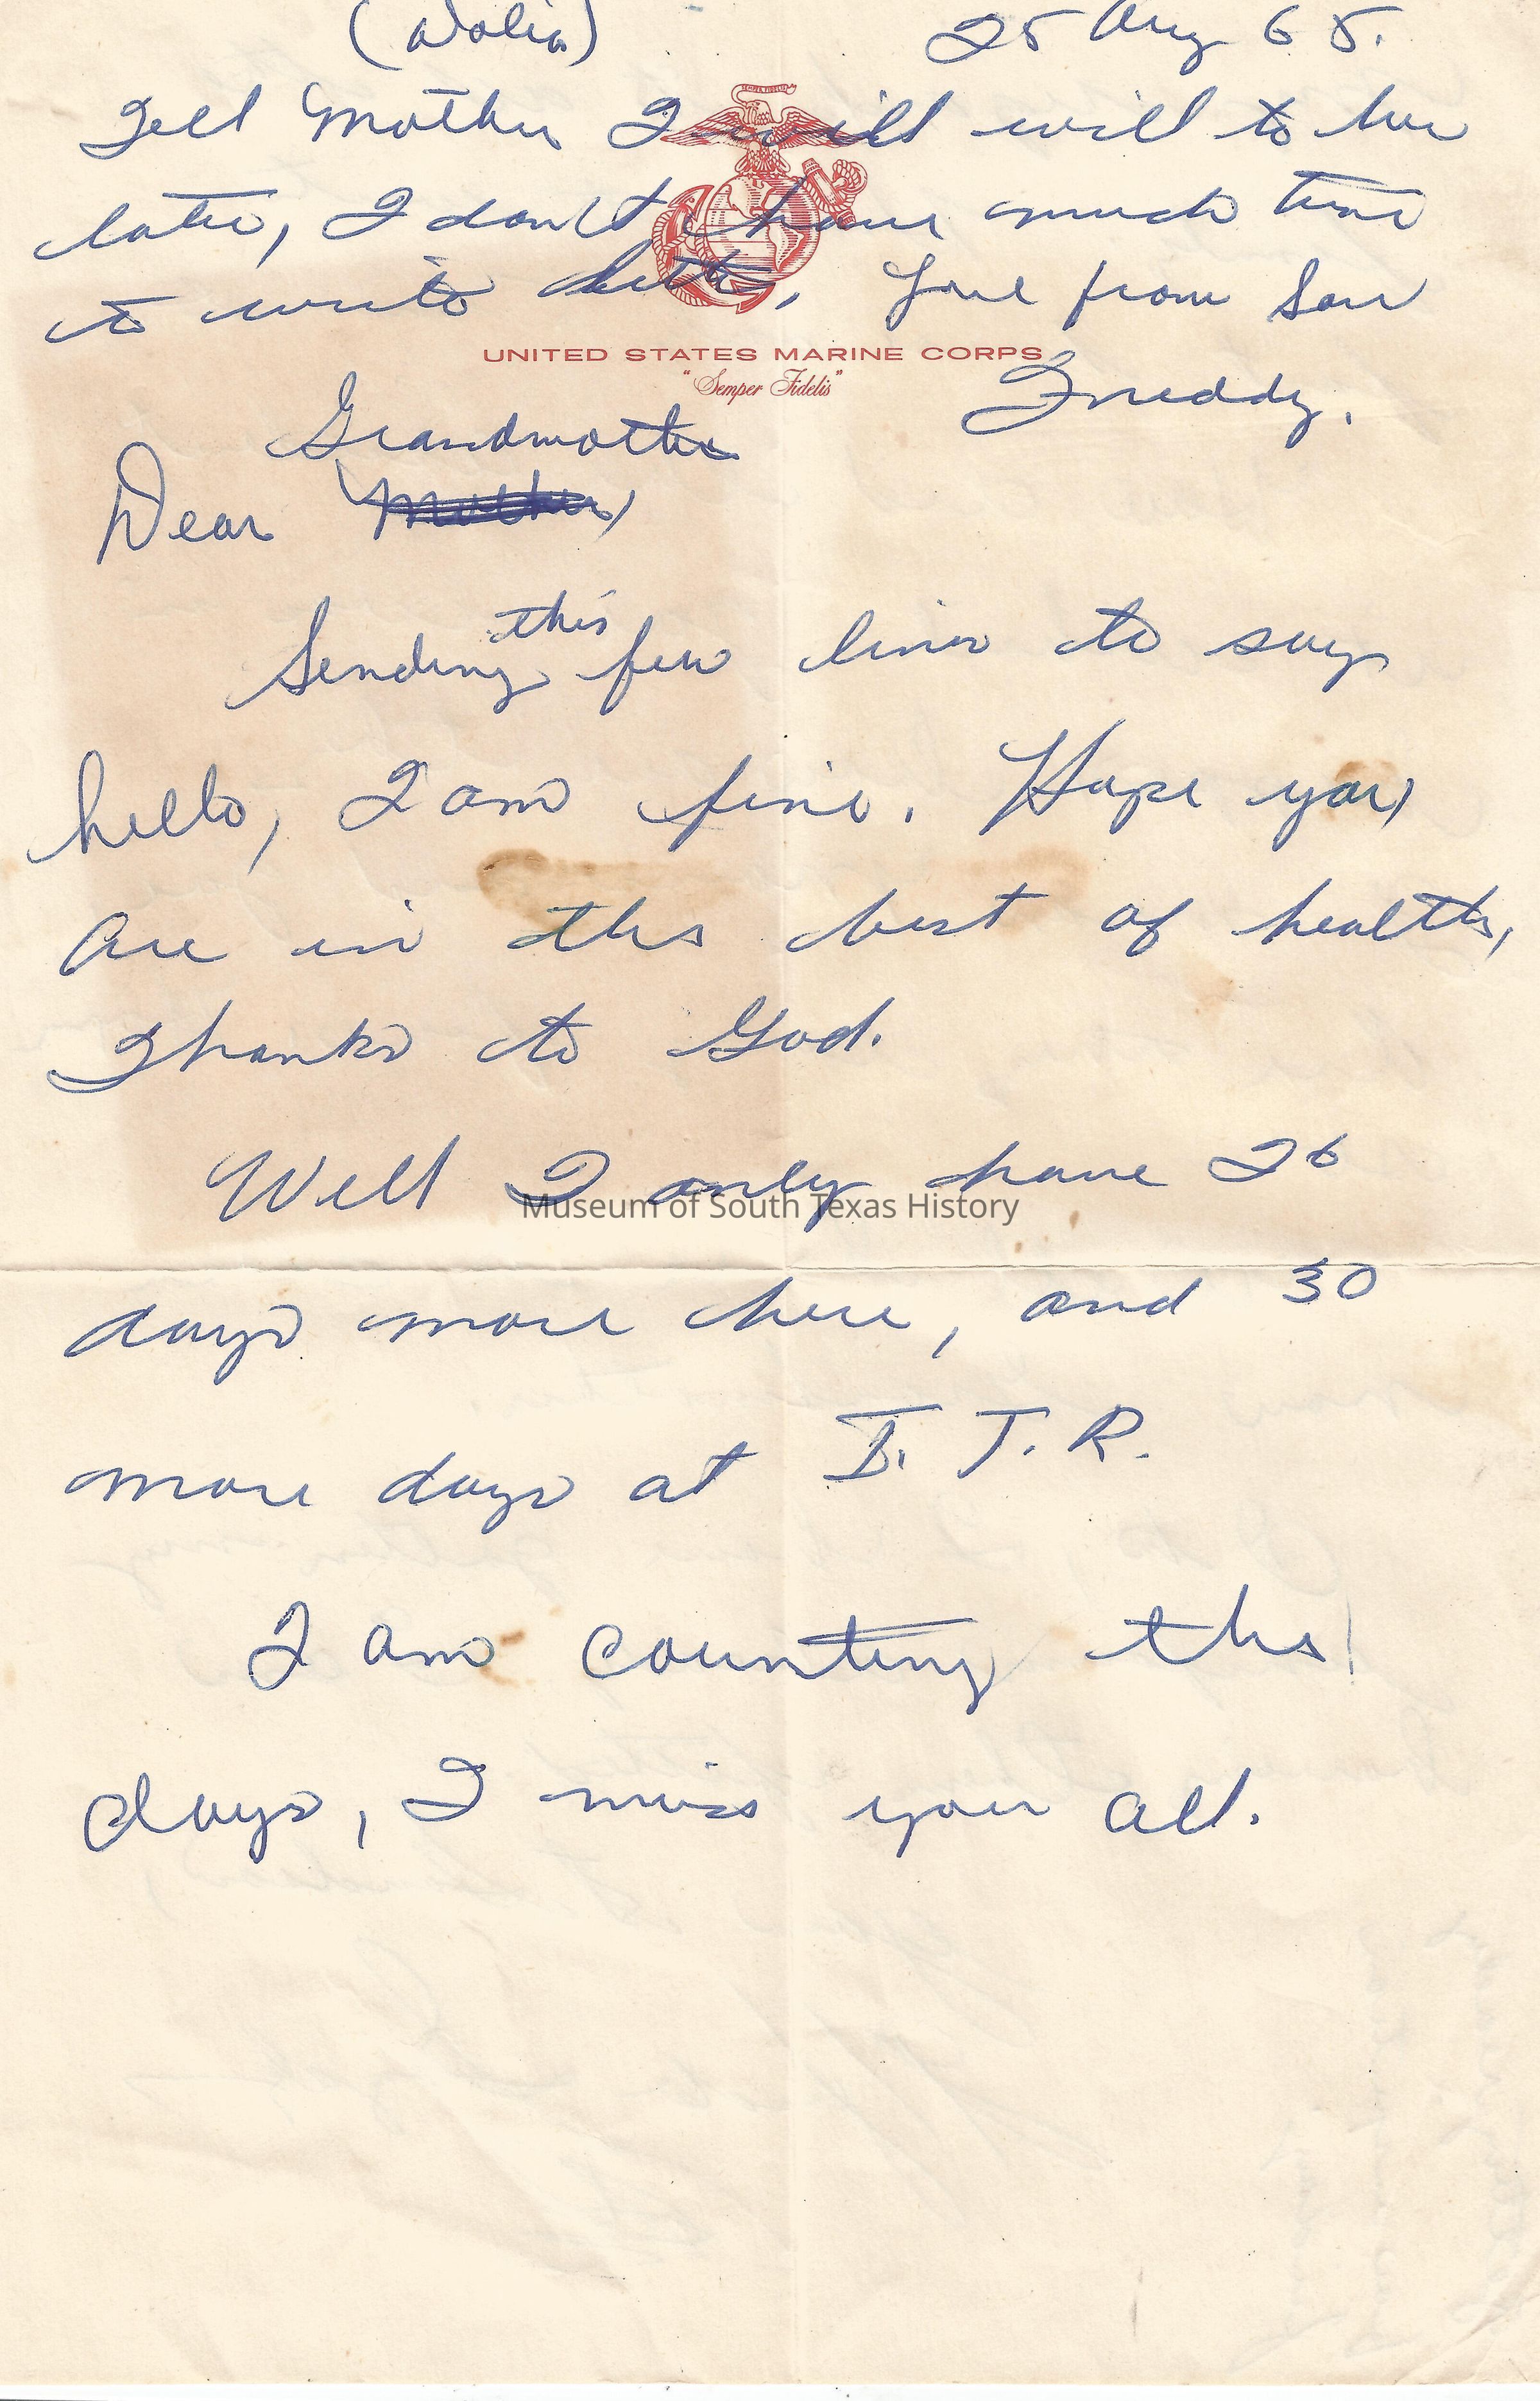 (Dolia) 25 Aug 65.
Tell Mother I will will to her
later, I don't have much time
to write letter, Love from Son
UNITED STATES MARINE CORPS
"Semper Fidelis"
Freddy.
Grandmother
Dear Mother,
this
Sending few lines to say
hello, I am fine. Hope you,
are in the best of health,
Thanks to God.
Well I only have 26
Museum of South Texas History
days more here, and 30
more days at I. T. R.
I am counting the
days, I miss you all.